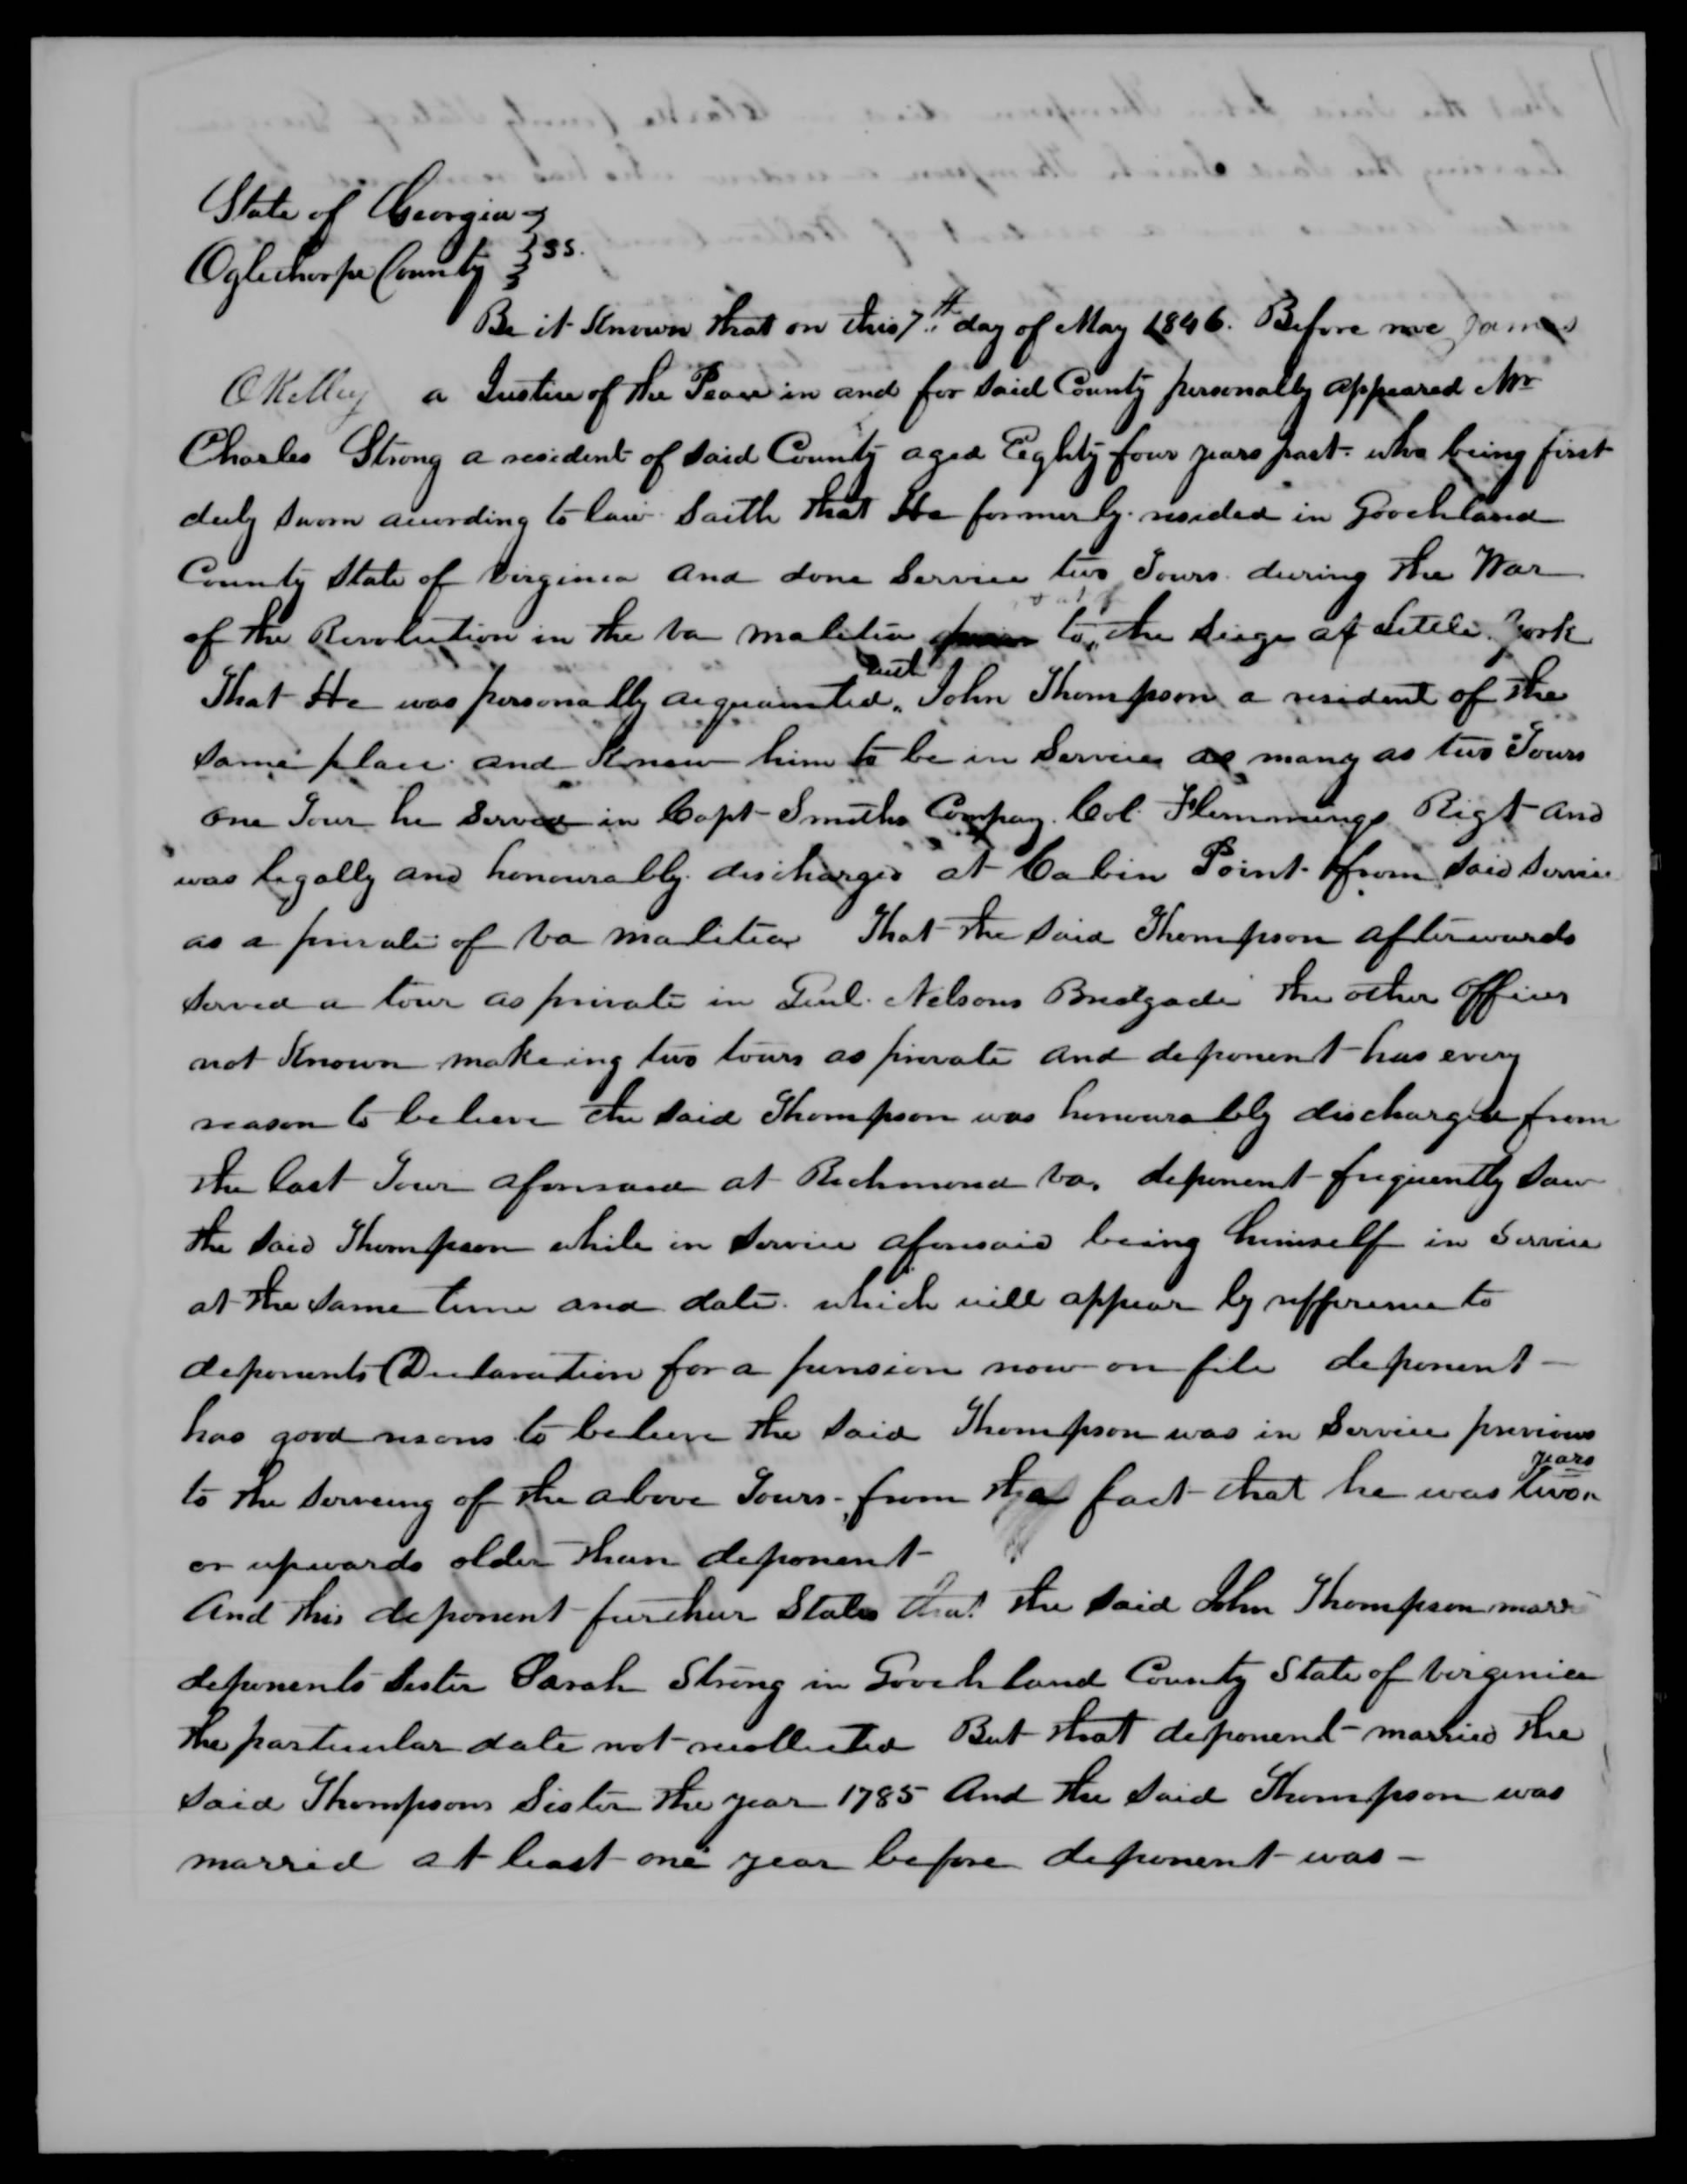 State of Georgia }
Oglethorpe County } SS.
Be it Known that on this 7th day of May 1846. Before me James
OKelley a Justice of the Peace in and for said County personally appeared Mr
Charles Strong a resident of said County aged Eighty four years past. who being first
duly sworn according to law Saith that He formerly resided in Goochland
County State of Virginia and done Service two Tours during the War
of the Revolution in the Va malitia to the Siege at Little York
That He was personally acquainted with John Thompson a resident of the
same place and Knew him to be in Service as many as two Tours
one Tour he Served in Capt Smiths Compay. Col. Flemmings Rigt and
was legally and honourably discharged at Cabin Point from said Service
as a private of Va malitia That the said Thompson afterwards
served a tour as private in Genl. Nelsons Bridgade the other officers
not Known makeing two tours as private and deponent has every
reason to believe the said Thompson was honourably discharged from
the last Tour aforesaid at Richmond Va, deponent frequently Saw
the said Thompson while in Service aforesaid being himself in Service
at the same time and date. which will appear by refference to
deponents Declaration for a pension now on file deponent
has good resons to believe the said Thompson was in Service previous
to the serveing of the above Tours. from the fact that he was two years
or upwards older than deponent
And this deponent further States that the said John Thompson marr
deponents Sister Sarah Strong in Goochland County State of Virginia
the particular date not recollected But that deponent married the
said Thompsons Sister the year 1785 And the said Thompson was
married at least one year before deponent was